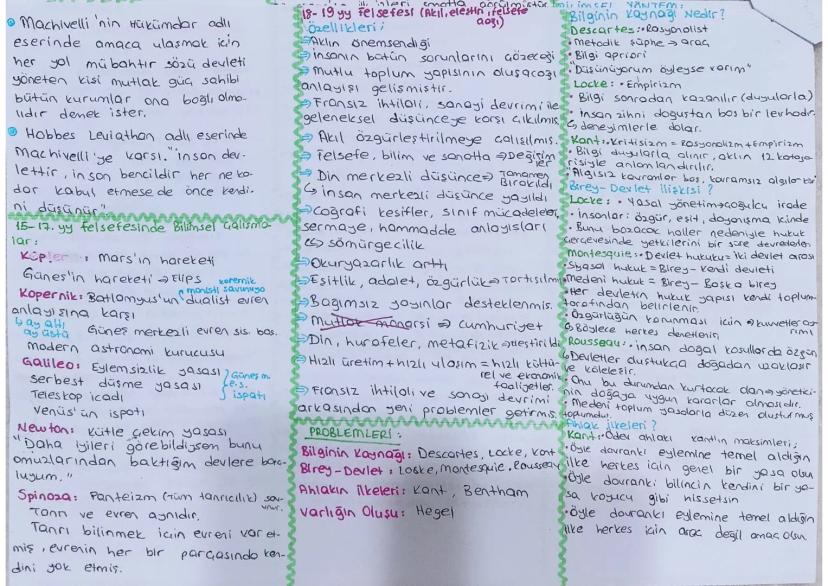 Machivelli'nin Hükümdar adlı
eserinde amaca ulaşmak için
her yol mübahtır sözü devleti
yöneten kişi mutlak güç sahibi
bütün kurumlar ona bağlı olma-
lıdır demek ister.
Hobbes Leviathan adlı eserinde
Machivelli'ye karşı. "insan dev-
lettir, insan bencildir her ne ka-
dar kabul etmesede önce kendi-
ni düşünür"
15-17. yy felsefesinde Bilimsel Çalışma-
lar:
Kepler: Mars'ın hareketi
Güneş'in hareketi → Elips
Kopernik: Batlamyus'un dualist evren
kopernik monisti savunuyo
anlayışına karşı
↳ ay altı
ay üstü
Güneş merkezli evren sis. bas.
modern astronomi kurucusu
Galileo: Eylemsizlik yasası
Serbest düşme yasası
Teleskop icadı
Venüs'ün ispatı
Güneş m.
e.s.
ispatı
Newton: Kütle çekim yasası
"Daha iyileri görebildiysen bunu
omuzlarından baktığım devlere borç-
luyum."
Spinoza: Panteizm (tüm tanrıcılık) sav-
unur.
Tanrı ve evren aynıdır.
Tanrı bilinmek için evreni var et-
miş, evrenin her bir parçasında ken-
dini yok etmiş.
18-19 yy Felsefesi (Akıl, eleştiri, felsefe
çağı)
Özellikleri:
Aklın önemsendiği
insanın bütün sorunlarını çözeceği
Mutlu toplum yapısının oluşacağı
anlayışı gelişmiştir.
Fransız ihtilali, sanayi devrimi ile
geleneksel düşünceye karşı çıkılmış
Akıl özgürleştirilmeye çalışılmış.
Felsefe, bilim ve sanatta → Değişim
ler
Din merkezli düşünce → Tamamen
Bırakıldı
↳ insan merkezli düşünce yayıldı
Coğrafi keşifler, sınıf mücadeleleri,
sermaye, hammadde anlayışları
↳ sömürgecilik
Okuryazarlık arttı
Eşitlik, adalet, özgürlük → Tartışılmış
Bağımsız yayınlar desteklenmiş.
Mutlak monarşi ⇒ cumhuriyet
Din, hurafeler, metafizik → eleştirildi
Hızlı üretim + hızlı ulaşım = hızlı kültü-
rel ve ekonomik
faaliyetler.
Fransız ihtilali ve sanayi devrimi
arkasından yeni problemler getirmiş.
PROBLEMLERİ:
Bilginin Kaynağı: Descartes, Locke, Kant
Birey-Devlet: Locke, Montesquie, Rousseau
Ahlakın ilkeleri: Kant, Bentham
Varlığın Oluşu: Hegel
Bilginin Kaynağı Nedir?
Descartes: • Rasyonalist
• Metodik şüphe → araç
• Bilgi apriori
• "Düşünüyorum öyleyse varım"
Locke: • Empirizm
• Bilgi sonradan kazanılır (duyularla)
• insan zihni doğuştan boş bir levhadır.
↳ deneyimlerle dolar.
Kant: • Kritisizm = Rasyonalizm + Empirizm
• Bilgi duyularla alınır, aklın 12 katego-
risiyle anlamlandırılır.
• Algısız kavramlar boş, kavramsız algılar
Birey-Devlet ilişkisi?
Locke: • Yasal yönetim → çoğulcu irade
• insanlar: özgür, eşit, dayanışma içinde
• Bunu bozacak haller nedeniyle hukuk
çerçevesinde yetkilerini bir süre devredeler.
Montesquie: • Devlet hukuku = iki devlet arası
• Siyasal hukuk = Birey - kendi devleti
• medeni hukuk = Birey - Başka birey
• Her devletin hukuk yapısı kendi toplum-
tarafından belirlenir.
• Özgürlüğün korunması için → kuvvetler ay-
rımı
↳ Böylece herkes denetlenir.
Rousseau: • insan doğal koşullarda özgür
• Devletler oluştukça doğadan uzaklaşır
ve köleleşir.
• Onu bu durumdan kurtacak olan → yönetici-
nin doğaya uygun kararlar almasıdır.
• Medeni toplum yasalarla düzen oluşturmuş
toplumdur.
Ahlak ilkeleri?
Kant: • Ödev ahlakı kantın maksimleri;
• Öyle davranki eylemine temel aldığın
ilke herkes için genel bir yasa olsun
• Öyle davranki bilincin kendini bir ya-
sa koyucu gibi hissetsin
• Öyle davranki eylemine temel aldığın
ilke herkes için araç değil amaç olsun